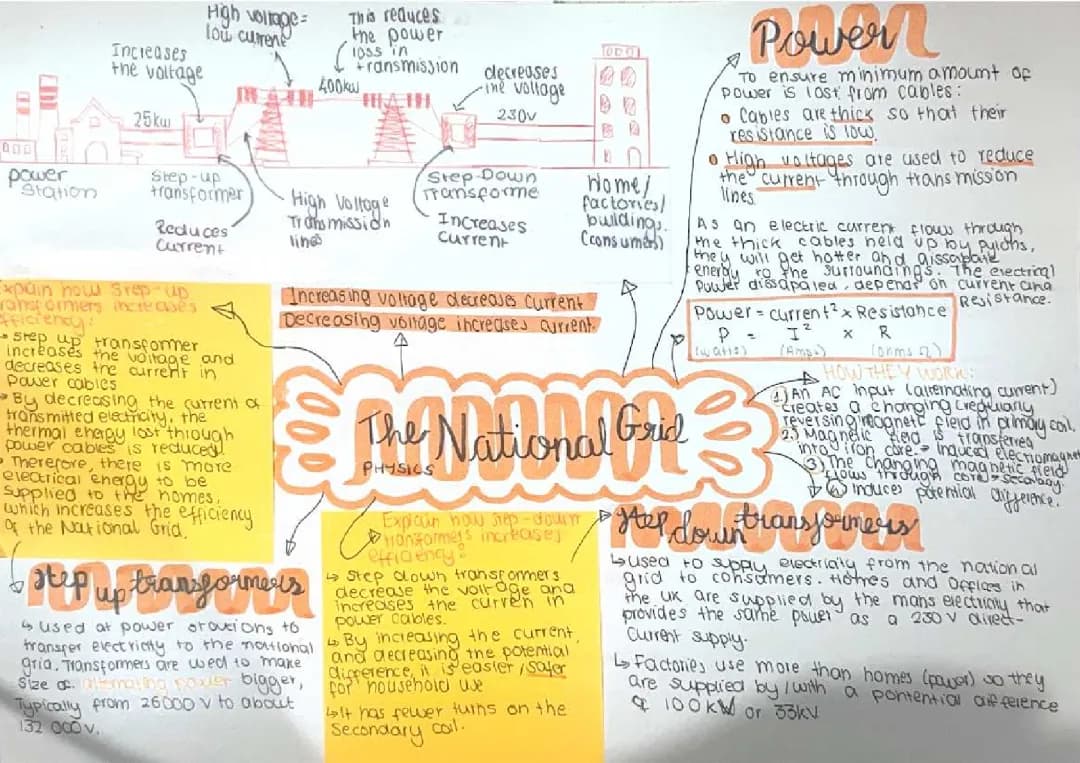 High voltage =
low current
This reduces
the power
loss in
transmission
Increases
the voltage
400kw
decreases
the voltage
25kw
230v
power
station
Step-up
transformer
Reduces
current
High Voltage
Transmission
lines
Step-Down
Transforme
Increases
current
Home/
factories/
buildings.
(consumers)
Power
To ensure minimum amount of
power is lost from cables:
Cables are thick so that their
resistance is low.
High voltages are used to reduce
the current through transmission
lines
As an electric current flows through
the thick cables held up by pylons,
they will get hotter and dissapate
energy to the surroundings. The electrical
Power dissapated, depends on current and
Resistance.
Power = current² × Resistance
P = I² × R
(watts) (Amps) (ohms Ω)
Increasing voltage decreases current
Decreasing voltage increases current.
Explain how Step-up
transformers increases
efficiency?
Step up transformer
increases the voltage and
decreases the current in
power cables
By decreasing the current of
transmitted electricity, the
thermal energy lost through
power cables is reduced.
Therefore, there is more
electrical energy to be
supplied to the homes,
which increases the efficiency
of the National Grid.
The National Grid
PHYSICS
HOW THEY WORK:
1) An AC input (alternating current)
creates a changing (regularly
reversing) magnetic field in primary coil.
2) Magnetic field is transferred
into iron core → induced electromagnet
3) The changing magnetic field
flows through core → secondary
4) Induces potential difference.
Step up transformers
↳ used at power stations to
transfer electricity to the national
grid. Transformers are used to make
size of alternating power bigger,
Typically from 26000 V to about
132 000 V.
Explain how step-down
transformers increases
efficiency?
↳ Step down transformers
decrease the voltage and
increases the current in
power cables.
↳ By increasing the current,
and decreasing the potential
difference, it is easier/safer
for household use
↳ It has fewer turns on the
secondary coil.
Step down transformers
↳ used to supply electricity from the national
grid to consumers. Homes and Offices in
the UK are supplied by the mans electricity that
provides the same power as a 230 V direct-
current supply.
↳ Factories use more than homes (power) so they
are supplied by/with a pontential difference
of 100kW or 33kV